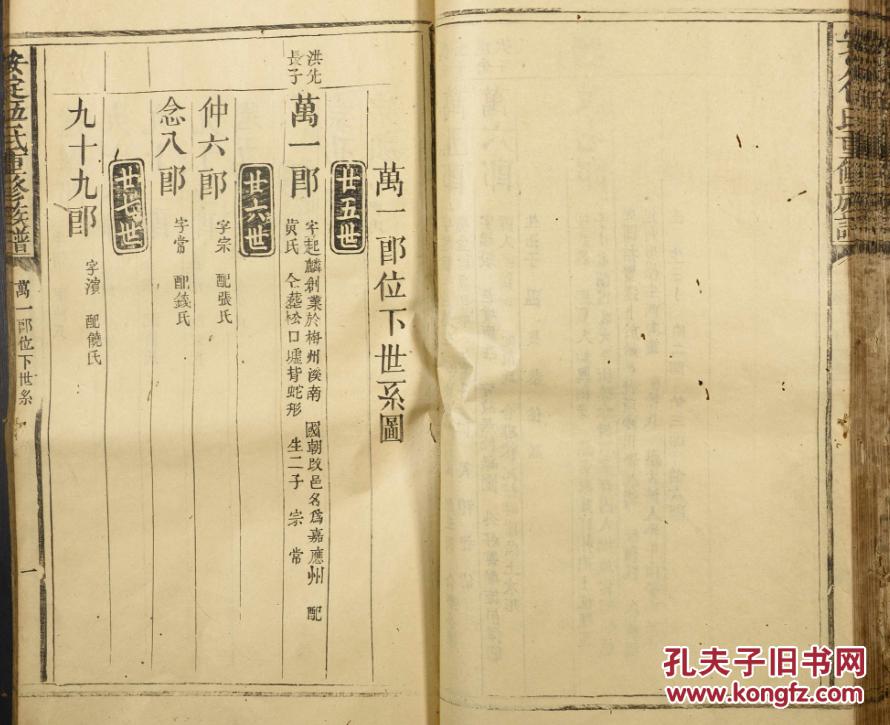 萬一郎位下世系圖
廿五世
洪先長子
萬一郎
字起麟創業於梅州溪南 國朝改邑名爲嘉應州 配
黄氏 仝葬松口墟背蛇形 生二子 宗 常
廿六世
仲六郎 字宗 配張氏
念八郎 字常 配錢氏
廿七世
九十九郎 字濱 配饒氏
安定伍氏重修族譜
萬一郎位下世系
一
孔夫子旧书网
www.kongfz.com